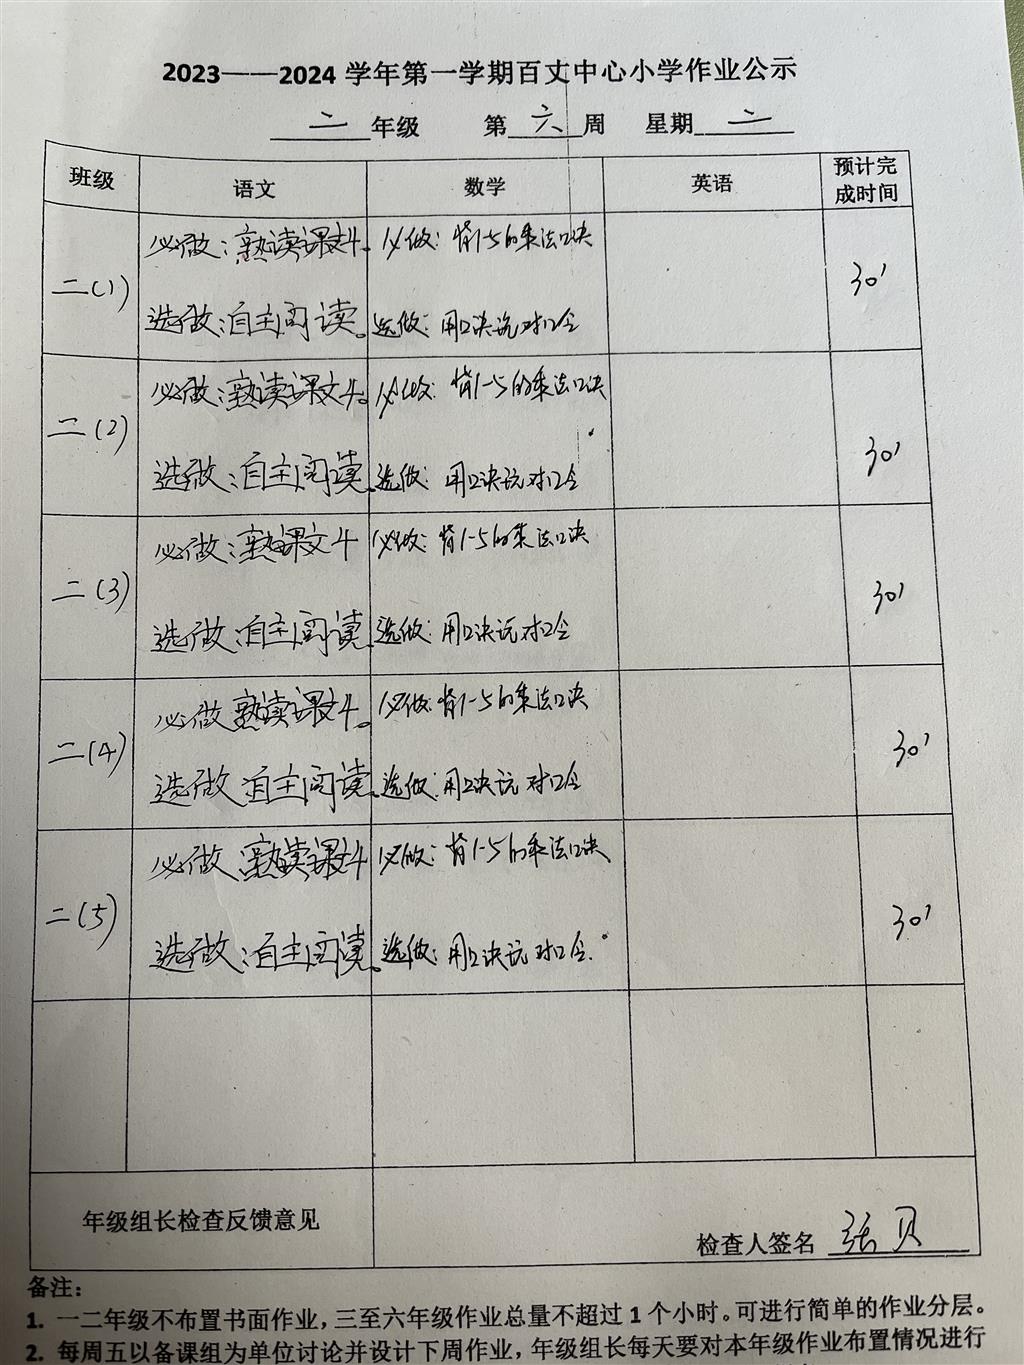 2023——2024 学年第一学期百丈中心小学作业公示
二 年级 第 六 周 星期 二
班级 语文 数学 英语 预计完成时间
二(1) 必做:熟读课文4。 必做:背1-5的乘法口决 30'
选做:自主阅读。 选做:用口决说对口令
二(2) 必做:熟读课文4。 必做:背1-5的乘法口决 30'
选做:自主阅读。 选做:用口决说对口令
二(3) 必做:熟课文4 必做:背1-5的乘法口决 30'
选做:自主阅读。 选做:用口决说对口令
二(4) 必做 熟读课文4。 必做:背1-5的乘法口决 30'
选做 自主阅读。 选做:用口决说对口令
二(5) 必做 熟读课文4 必做:背1-5的乘法口决 30'
选做:自主阅读。 选做:用口决说对口令.
年级组长检查反馈意见
检查人签名 张贝
备注:
1. 一二年级不布置书面作业,三至六年级作业总量不超过 1 个小时。可进行简单的作业分层。
2. 每周五以备课组为单位讨论并设计下周作业,年级组长每天要对本年级作业布置情况进行